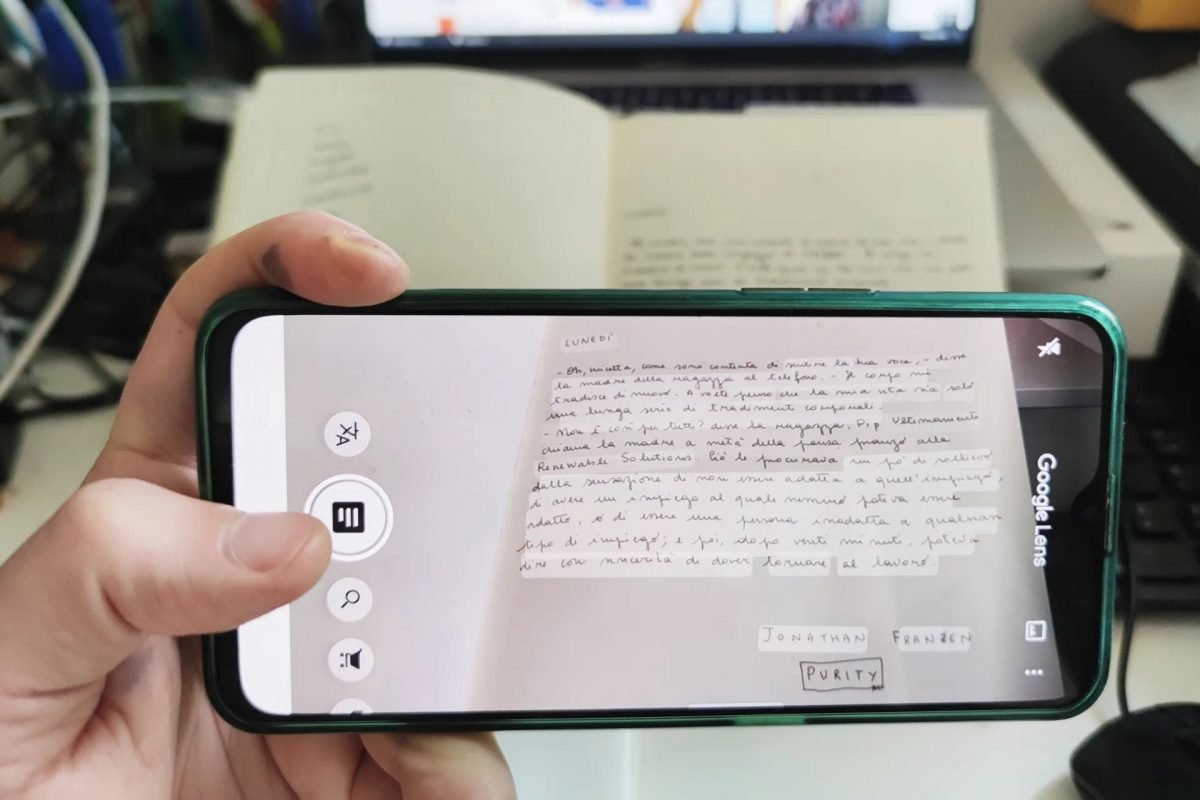 LUNEDÌ
- Oh, micetta, come sono contenta di sentire la tua voce, - disse
la madre della ragazza al telefono. - Il corpo mi
tradisce di nuovo. A volte penso che la mia vita sia solo
una lunga serie di tradimenti corporali.
- Non è così per tutti? disse la ragazza, Pip. Ultimamente
chiama la madre a metà della pausa pranzo alla
Renewable Solutions. Ciò le procurava un po' di sollievo
dalla sensazione di non essere adatta a quell'impiego,
di avere un impiego al quale nessuno poteva essere
adatto, o di essere una persona inadatta a qualsiasi
tipo di impiego; e poi, dopo venti minuti, poteva
dire con sincerità di dover tornare al lavoro.
JONATHAN FRANZEN
PURITY
Google Lens